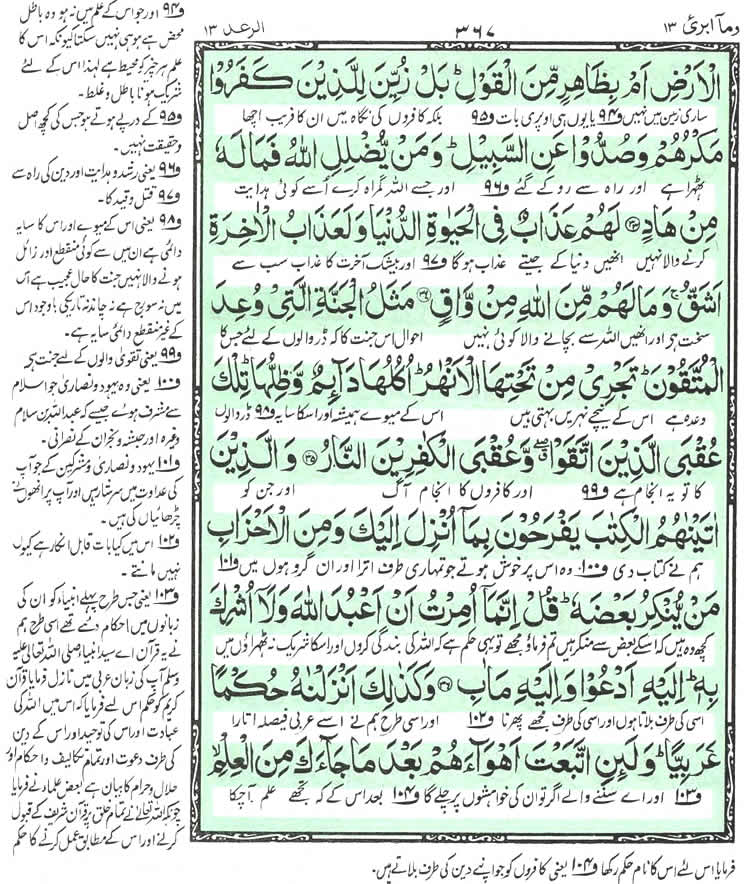 وما آبرئ ١٣
٣٦٧
الرعد ١٣
الْاَرْضِ اَمْ بِظَاهِرٍ مِّنَ الْقَوْلِ ؕ بَلْ زُیِّنَ لِلَّذِیْنَ كَفَرُوْا
ساری زمین میں نہیں و۹۴ یا یوں ہی اوپری بات و۹۵ بلکہ کافروں کی نگاہ میں ان کا فریب اچھا
مَكْرُهُمْ وَصُدُّوْا عَنِ السَّبِیْلِ ؕ وَمَنْ یُّضْلِلِ اللّٰهُ فَمَا لَهٗ
ٹھہرا ہے اور راہ سے روکے گئے و۹۶ اور جسے اللہ گمراہ کرے اُسے کوئی ہدایت
مِنْ هَادٍ ﴿۳۳﴾ لَهُمْ عَذَابٌ فِی الْحَیٰوةِ الدُّنْیَا وَلَعَذَابُ الْاٰخِرَةِ
کرنے والا نہیں انھیں دنیا کے جیتے عذاب ہوگا و۹۷ اور بیشک آخرت کا عذاب سب سے
اَشَقُّ ۚ وَمَا لَهُمْ مِّنَ اللّٰهِ مِنْ وَّاقٍ ﴿۳۴﴾ مَثَلُ الْجَنَّةِ الَّتِیْ وُعِدَ
سخت ہے اور انھیں اللہ سے بچانے والا کوئی نہیں احوال اس جنت کا کہ ڈر والوں کے لئے جس کا
الْمُتَّقُوْنَ ؕ تَجْرِیْ مِنْ تَحْتِهَا الْاَنْهٰرُ ؕ اُكُلُهَا دَآىِٕمٌ وَّظِلُّهَا ؕ تِلْكَ
وعدہ ہے اس کے نیچے نہریں بہتی ہیں اس کے میوے ہمیشہ اور اس کا سایہ و۹۸ ڈر والوں
عُقْبَی الَّذِیْنَ اتَّقَوْا ۖۗ وَّعُقْبَی الْكٰفِرِیْنَ النَّارُ ﴿۳۵﴾ وَالَّذِیْنَ
کا تو یہ انجام ہے و۹۹ اور کافروں کا انجام آگ اور جن کو
اٰتَیْنٰهُمُ الْكِتٰبَ یَفْرَحُوْنَ بِمَاۤ اُنْزِلَ اِلَیْكَ وَمِنَ الْاَحْزَابِ
ہم نے کتاب دی و۱۰۰ وہ اس پر خوش ہوتے جو تمہاری طرف اترا اور ان گروہوں میں و۱۰۱
مَنْ یُّنْكِرُ بَعْضَهٗ ؕ قُلْ اِنَّمَاۤ اُمِرْتُ اَنْ اَعْبُدَ اللّٰهَ وَلَاۤ اُشْرِكَ
کچھ وہ ہیں کہ اسکے بعض سے منکر ہیں تم فرماؤ مجھے تو یہی حکم ہے کہ اللہ کی بندگی کروں اور اسکا شریک نہ ٹھہراؤں میں
بِهٖ ؕ اِلَیْهِ اَدْعُوْا وَاِلَیْهِ مَاٰبِ ﴿۳۶﴾ وَكَذٰلِكَ اَنْزَلْنٰهُ حُكْمًا
اسی کی طرف بلاتا ہوں اور اسی کی طرف مجھے پھرنا و۱۰۲ اور اسی طرح ہم نے اسے عربی فیصلہ اتارا
عَرَبِیًّا ؕ وَلَىِٕنِ اتَّبَعْتَ اَهْوَآءَهُمْ بَعْدَ مَا جَآءَكَ مِنَ الْعِلْمِ ۙ
و۱۰۳ اور اے سننے والے اگر تو ان کی خواہشوں پر چلے گا و۱۰۴ بعد اس کے کہ تجھے علم آچکا
و۹۴ اور جو اس کے علم میں نہ ہو وہ باطل
محض ہے ہو ہی نہیں سکتا کیونکہ اس کا
علم ہر چیز کو محیط ہے لہٰذا اس کے لئے
شریک ہونا باطل و غلط۔
و۹۵ کے درپے ہوتے ہو جس کی کچھ اصل
و حقیقت نہیں۔
و۹۶ یعنی رشد و ہدایت اور دین کی راہ سے
و۹۷ قتل و قید کا۔
و۹۸ یعنی اس کے میوے اور اس کا سایہ
دائمی ہے ان میں سے کوئی منقطع اور زائل
ہونے والا نہیں جنت کا حال عجیب ہے اس
میں نہ سورج ہے نہ چاند نہ تاریکی باوجود اس
کے غیر منقطع دائمی سایہ ہے۔
و۹۹ یعنی تقویٰ والوں کے لئے جنت ہے
و۱۰۰ یعنی وہ یہود و نصاریٰ جو اسلام
سے مشرف ہوئے جیسے کہ عبداللہ بن سلام
وغیرہ اور حبشہ و نجران کے نصرانی۔
و۱۰۱ یہود و نصاریٰ و مشرکین کے جو آپ
کی عداوت میں سرشار ہیں اور آپ پر انھوں نے
چڑھائیاں کی ہیں۔
و۱۰۲ اس میں کیا بات قابل انکار ہے کیوں
نہیں مانتے۔
و۱۰۳ یعنی جس طرح پہلے انبیاء کو ان کی
زبانوں میں احکام دیئے تھے اسی طرح ہم
نے یہ قرآن اے سید انبیا صلی اللہ تعالیٰ علیہ
وسلم آپ کی زبان عربی میں نازل فرمایا قرآن
کریم کو حکم اس لئے فرمایا کہ اس میں اللہ کی
عبادت اور اس کی توحید اور اس کے دین
کی طرف دعوت اور تمام تکالیف و احکام اور
حلال و حرام کا بیان ہے بعض علماء نے فرمایا
چونکہ اللہ تعالیٰ نے تمام خلق پر قرآن شریف کے قبول
کرنے اور اس کے مطابق عمل کرنے کا حکم
فرمایا اس لئے اس کا نام حکم رکھا و۱۰۴ یعنی کافروں کو جو اپنے دین کی طرف بلاتے ہیں۔